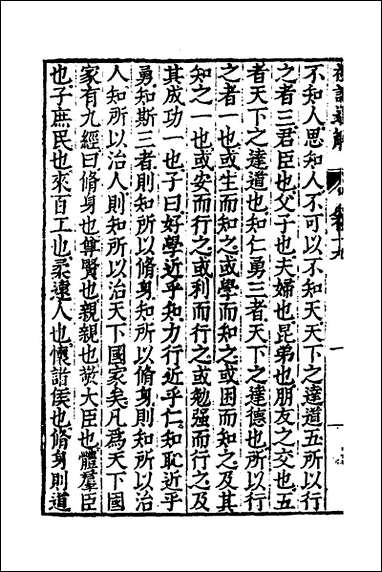 禮記通解
不知人思知人不可以不知天天下之達道五所以行
之者三君臣也父子也夫婦也昆弟也朋友之交也五
者天下之達道也知仁勇三者天下之達德也所以行
之者一也或生而知之或學而知之或困而知之及其
知之一也或安而行之或利而行之或勉强而行之及
其成功一也子曰好學近乎知力行近乎仁知恥近乎
勇知斯三者則知所以脩身知所以脩身則知所以治
人知所以治人則知所以治天下國家矣凡爲天下國
家有九經曰脩身也尊賢也親親也敬大臣也體羣臣
也子庶民也來百工也柔遠人也懷諸侯也脩身則道